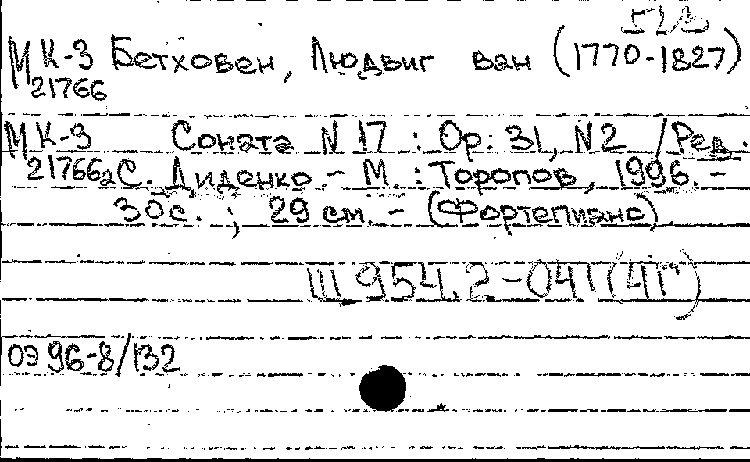 МК-3 Бетховен, Людвиг ван (1770-1827)
21766
МК-3 Соната N 17 : Ор. 31, N2 / Ред.
21766а С. Диденко. - М. : Торопов, 1996. -
30 с. ; 29 см. - (Фортепиано).
Ш 954.2-041(4Г)
ОЭ 96-8/132